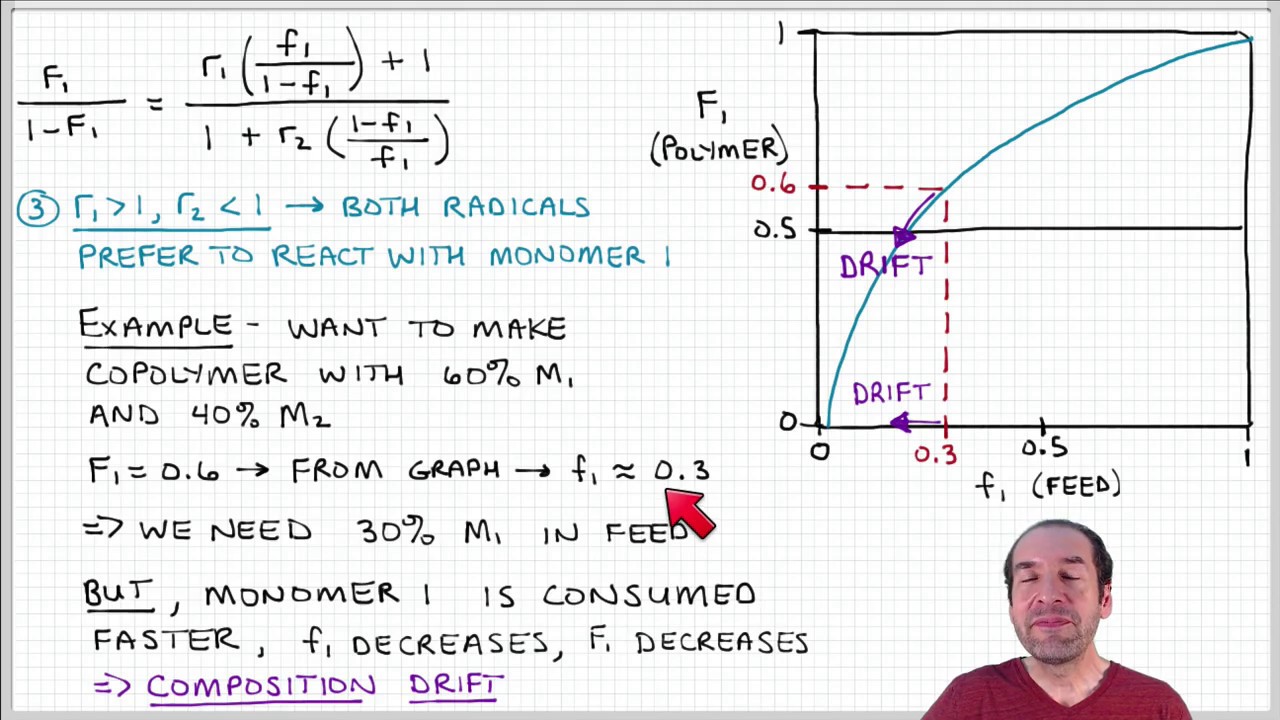 F₁ / (1-F₁) = (r₁ (f₁ / (1-f₁)) + 1) / (1 + r₂ ((1-f₁) / f₁))
③ r₁ > 1, r₂ < 1 → BOTH RADICALS
PREFER TO REACT WITH MONOMER 1
EXAMPLE - WANT TO MAKE
COPOLYMER WITH 60% M₁
AND 40% M₂
F₁ = 0.6 → FROM GRAPH → f₁ ≈ 0.3
⇒ WE NEED 30% M₁ IN FEED
BUT, MONOMER 1 IS CONSUMED
FASTER, f₁ DECREASES, F₁ DECREASES
⇒ COMPOSITION DRIFT
1
F₁
(POLYMER)
0.6
0.5
DRIFT
DRIFT
0
0
0.3
0.5
1
f₁ (FEED)